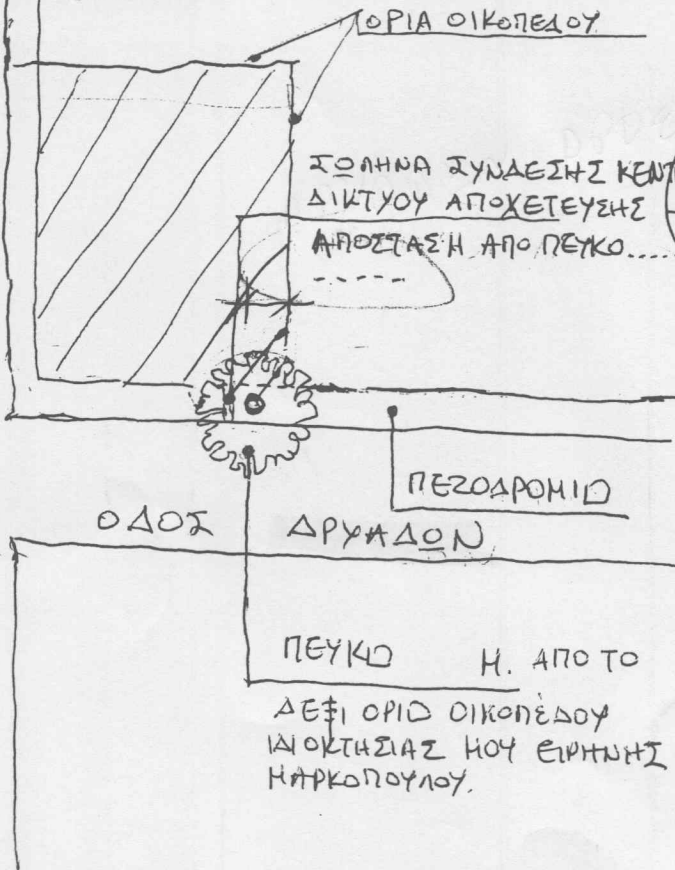 ΟΡΙΑ ΟΙΚΟΠΕΔΟΥ
ΣΩΛΗΝΑ ΣΥΝΔΕΣΗΣ ΚΕΝΤ
ΔΙΚΤΥΟΥ ΑΠΟΧΕΤΕΥΣΗΣ
ΑΠΟΣΤΑΣΗ ΑΠΟ ΠΕΥΚΟ.....
ΠΕΖΟΔΡΟΜΙΟ
ΟΔΟΣ ΔΡΥΑΔΩΝ
ΠΕΥΚΟ Μ. ΑΠΟ ΤΟ
ΔΕΞΙ ΟΡΙΟ ΟΙΚΟΠΈΔΟΥ
ΙΔΙΟΚΤΗΣΙΑΣ ΜΟΥ ΕΙΡΗΝΗΣ
ΜΑΡΚΟΠΟΥΛΟΥ.